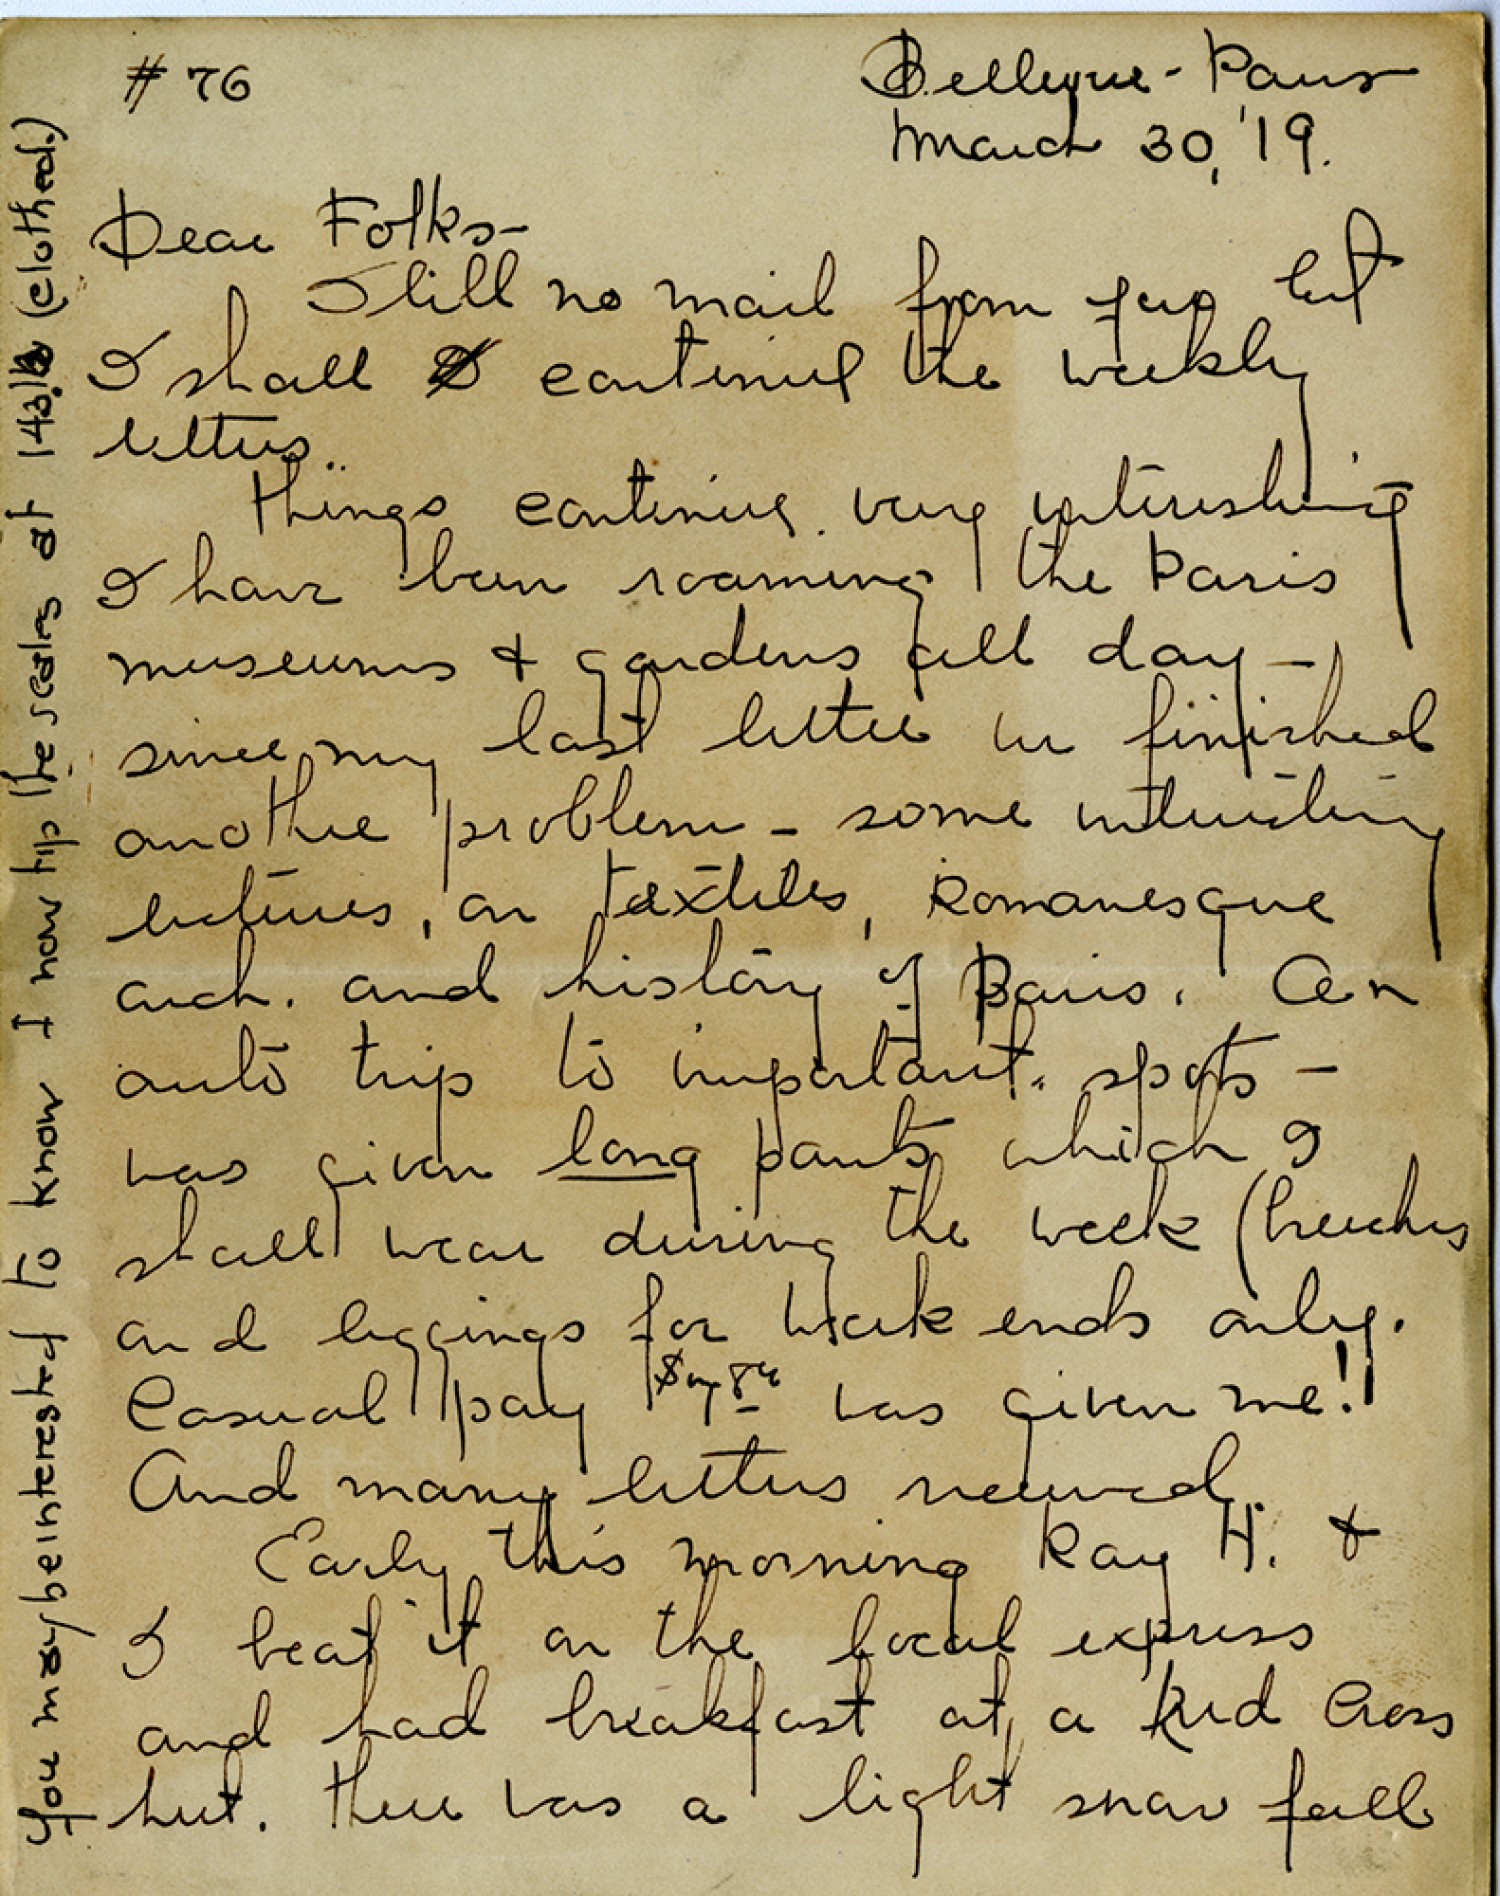 # 76
Bellevue - Paris
March 30, '19.
Dear Folks-
Still no mail from you but
I shall continue the weekly
letters.
Things continue very interesting
I have been roaming the Paris
museums & gardens all day -
since my last letter we finished
another problem - some interesting
lectures, on textiles, Romanesque
arch. and history of Paris. An
auto trip to important spots -
was given long pants which I
shall wear during the week (breeches
and leggings for week ends only.
Casual pay was given me!!
And many letters received.
Early this morning Ray H. &
I beat it on the local express
and had breakfast at a Red Cross
hut. There was a light snow fall
You may be interested to know I now tip the scales at 143 lbs (clothed.)